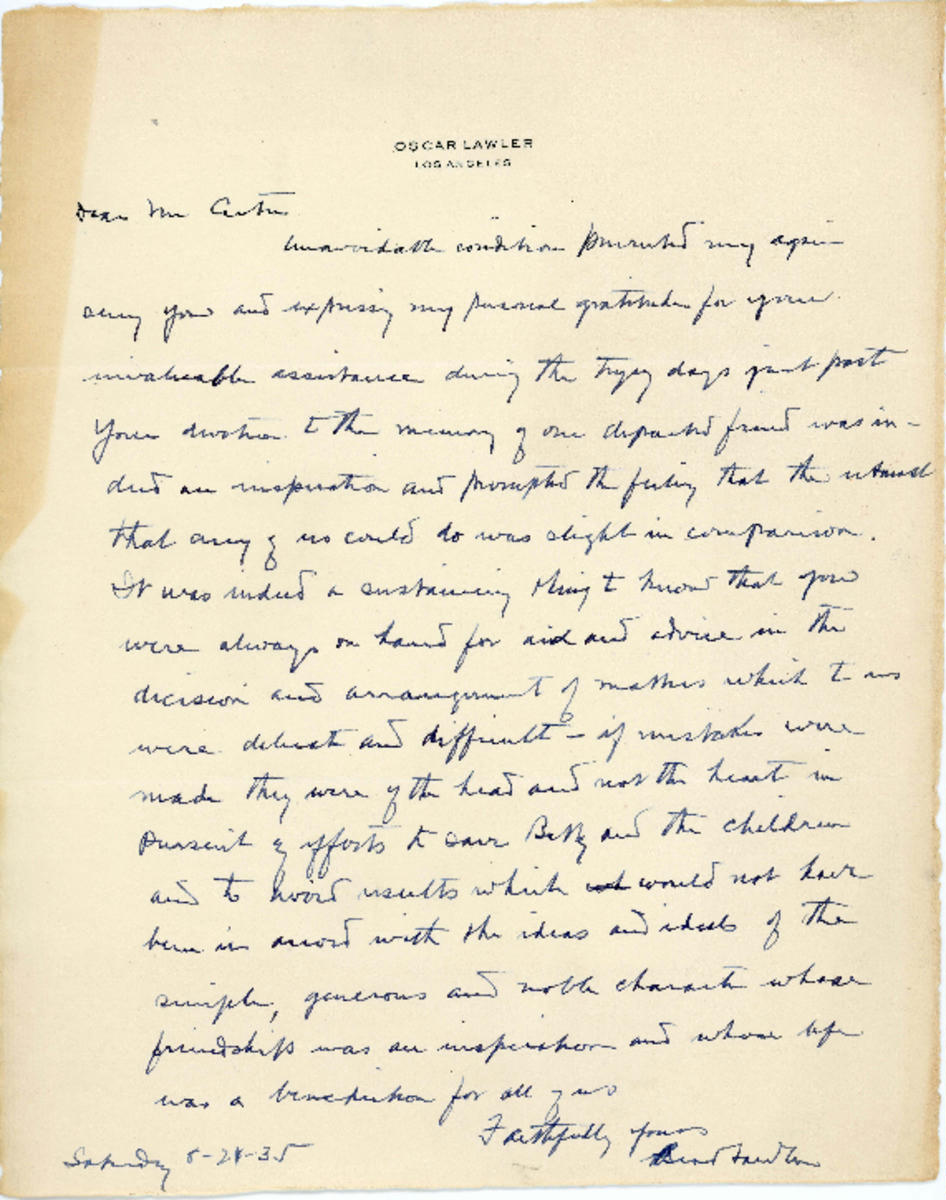 OSCAR LAWLER
LOS ANGELES
Dear Mr Carter
Unavoidable condition prevented my again
seeing you and expressing my personal gratitude for your
invaluable assistance during the trying days just past
Your devotion to the memory of our departed friend was in-
deed an inspiration and prompted the feeling that the utmost
that any of us could do was slight in comparison.
It was indeed a sustaining thing to know that you
were always on hand for aid and advice in the
decision and arrangement of matters which to us
were delicate and difficult - if mistakes were
made they were of the head and not the heart in
pursuit of efforts to save Betty and the children
and to avoid results which would not have
been in accord with the ideas and ideals of the
simple, generous and noble character whose
friendship was an inspiration and whose life
was a benediction for all of us
Faithfully yours
Saturday 8-24-35